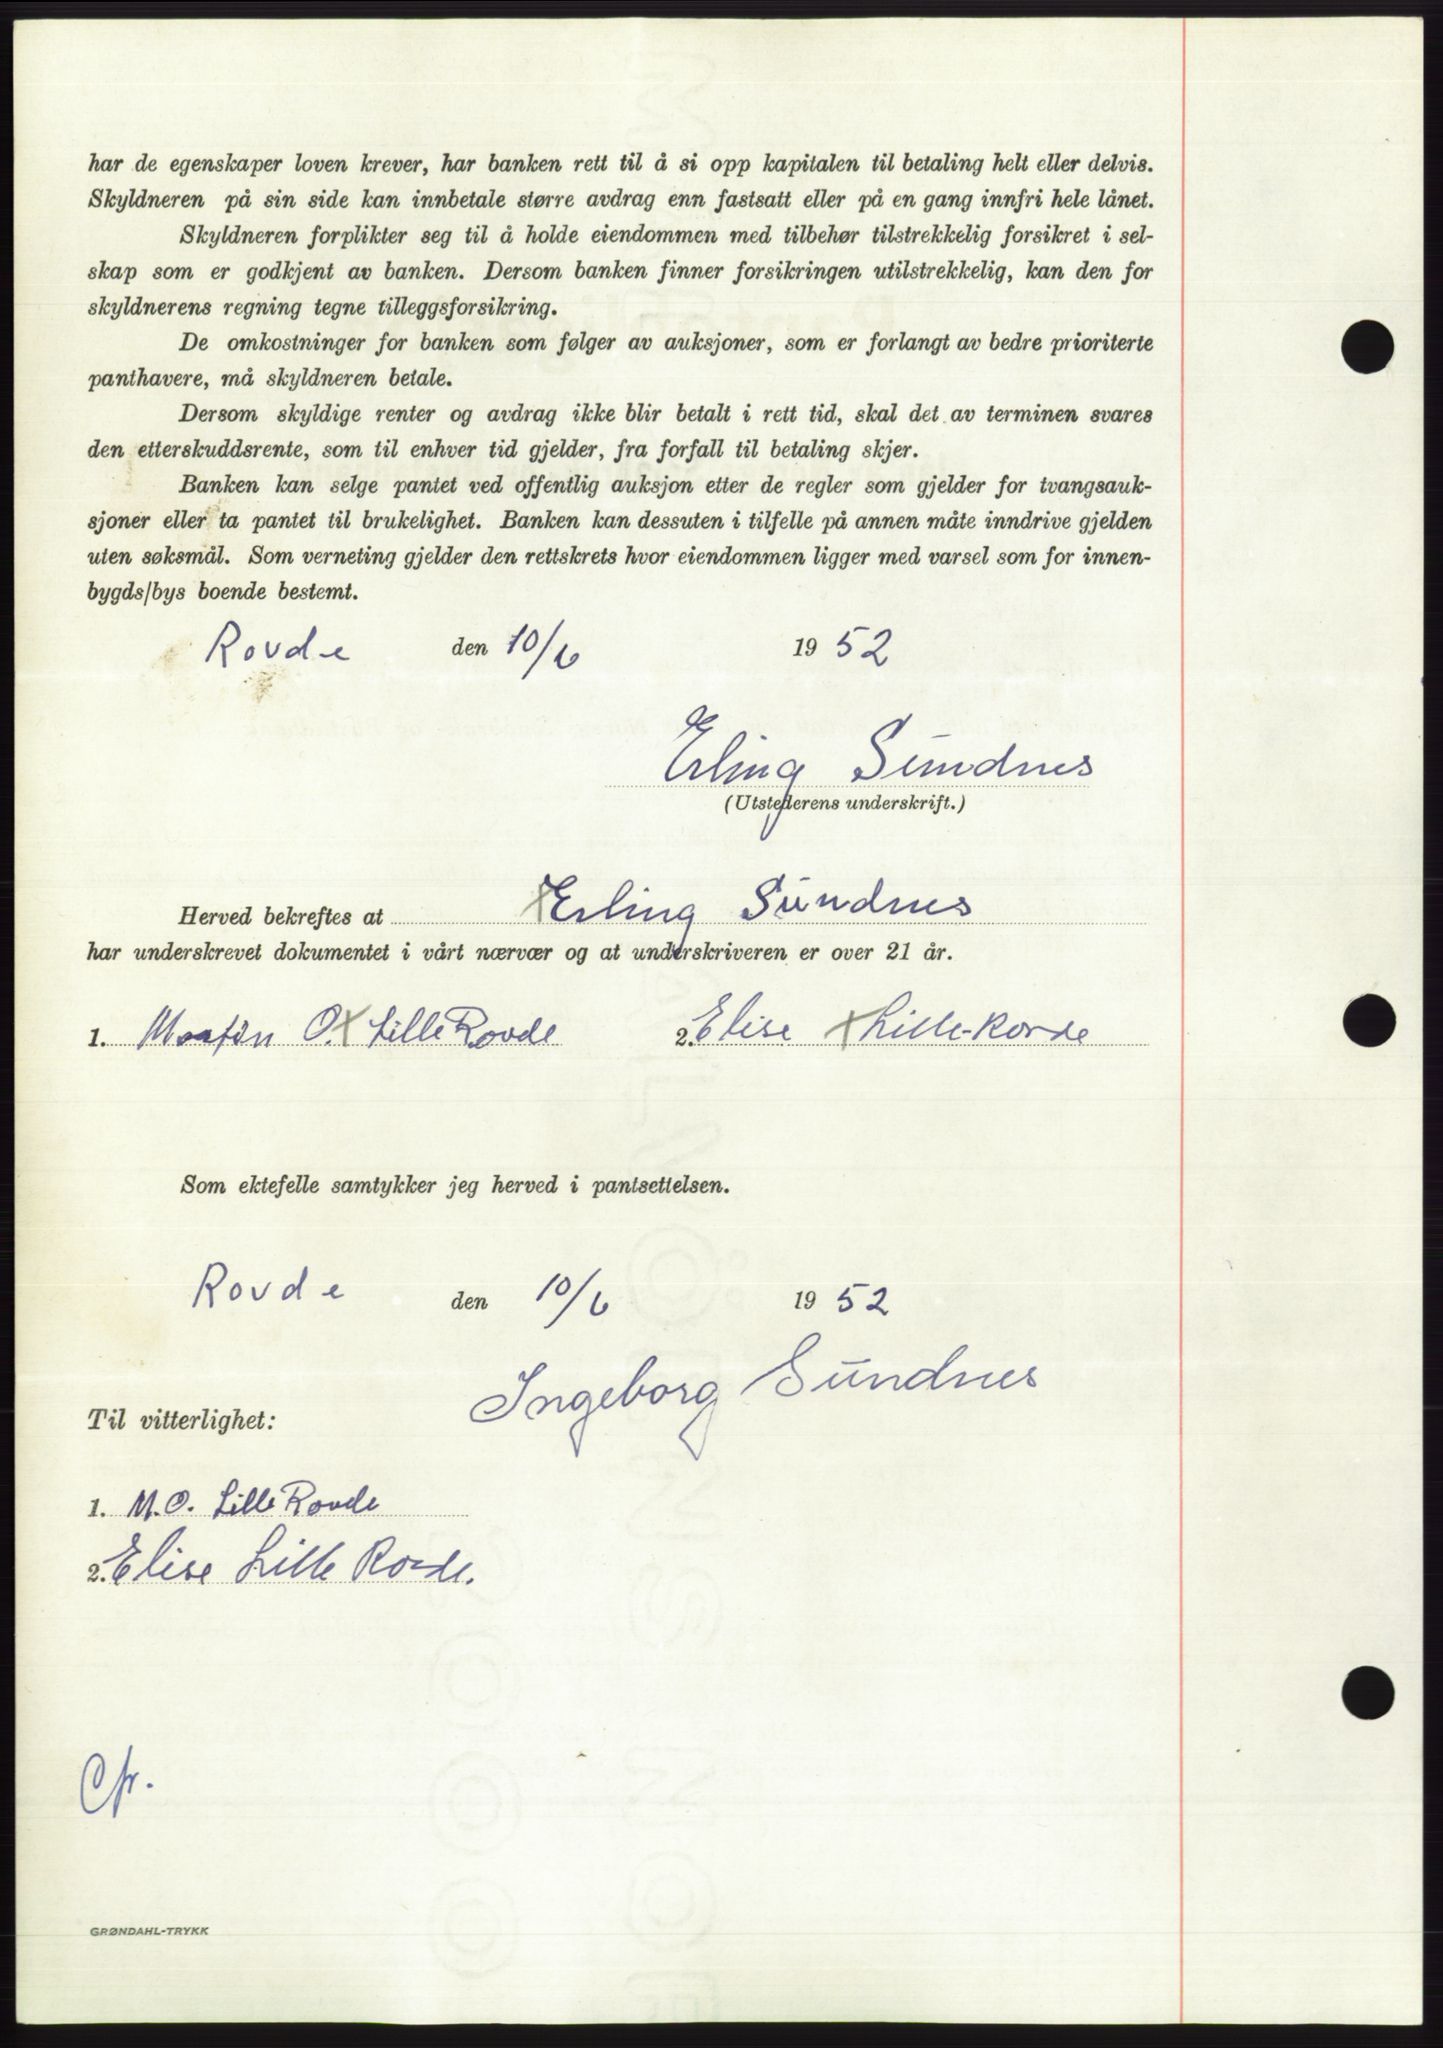 har de egenskaper loven krever, har banken rett til å si opp kapitalen til betaling helt eller delvis.
Skyldneren på sin side kan innbetale større avdrag enn fastsatt eller på en gang innfri hele lånet.
Skyldneren forplikter seg til å holde eiendommen med tilbehør tilstrekkelig forsikret i sel-
skap som er godkjent av banken. Dersom banken finner forsikringen utilstrekkelig, kan den for
skyldnerens regning tegne tilleggsforsikring.
De omkostninger for banken som følger av auksjoner, som er forlangt av bedre prioriterte
panthavere, må skyldneren betale.
Dersom skyldige renter og avdrag ikke blir betalt i rett tid, skal det av terminen svares
den etterskuddsrente, som til enhver tid gjelder, fra forfall til betaling skjer.
Banken kan selge pantet ved offentlig auksjon etter de regler som gjelder for tvangsauk-
sjoner eller ta pantet til brukelighet. Banken kan dessuten i tilfelle på annen måte inndrive gjelden
uten søksmål. Som verneting gjelder den rettskrets hvor eiendommen ligger med varsel som for innen-
bygds/bys boende bestemt.
Rovde den 10/6 1952
Erling Sundnes
(Utstederens underskrift.)
Herved bekreftes at Erling Sundnes
har underskrevet dokumentet i vårt nærvær og at underskriveren er over 21 år.
1. Martin O. Lille Rovde 2. Elise Lille-Rovde
Som ektefelle samtykker jeg herved i pantsettelsen.
Rovde den 10/6 1952
Ingeborg Sundnes
Til vitterlighet:
1. M.O. Lille Rovde
2. Elise Lille Rovde.
GRØNDAHL-TRYKK